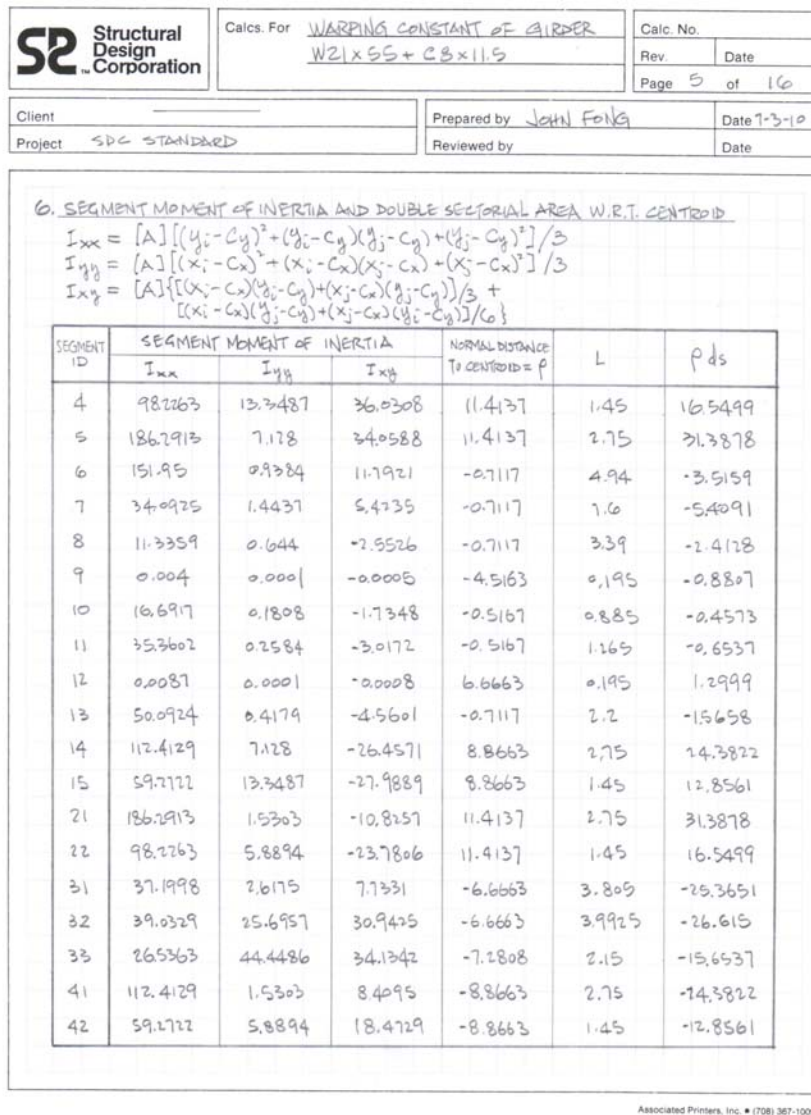 SD Structural
Design
Corporation
Calcs. For WARPING CONSTANT OF GIRDER
W21x55 + C8x11.5
Calc. No.
Rev. Date
Page 5 of 16
Client
Prepared by JOHN FONG
Date 7-3-10
Project SDC STANDARD
Reviewed by
Date
6. SEGMENT MOMENT OF INERTIA AND DOUBLE SECTORIAL AREA W.R.T. CENTROID
Ixx = [A][(yi-Cy)²+(yi-Cy)(yj-Cy)+(yj-Cy)²]/3
Iyy = [A][(xi-Cx)²+(xi-Cx)(xj-Cx)+(xj-Cx)²]/3
Ixy = [A]{[(xi-Cx)(yi-Cy)+(xj-Cx)(yj-Cy)]/3 +
[(xi-Cx)(yj-Cy)+(xj-Cx)(yi-Cy)]/6}
SEGMENT ID SEGMENT MOMENT OF INERTIA NORMAL DISTANCE TO CENTROID = ρ L ρ ds
Ixx Iyy Ixy
4 98.2263 13.3487 36.0308 11.4137 1.45 16.5499
5 186.2913 7.128 34.0588 11.4137 2.75 31.3878
6 151.95 0.9384 11.7921 -0.7117 4.94 -3.5159
7 34.0925 1.4437 5.4235 -0.7117 7.6 -5.4091
8 11.3359 0.644 -2.5526 -0.7117 3.39 -2.4128
9 0.004 0.0001 -0.0005 -4.5163 0.195 -0.8807
10 16.6917 0.1808 -1.7348 -0.5167 0.885 -0.4573
11 35.3602 0.2584 -3.0172 -0.5167 1.265 -0.6537
12 0.0087 0.0001 -0.0008 6.6663 0.195 1.2999
13 50.0924 0.4179 -4.5601 -0.7117 2.2 -1.5658
14 112.4129 7.128 -26.4571 8.8663 2.75 24.3822
15 59.2722 13.3487 -27.9889 8.8663 1.45 12.8561
21 186.2913 1.5303 -10.8257 11.4137 2.75 31.3878
22 98.2263 5.8894 -23.7806 11.4137 1.45 16.5499
31 37.1998 2.6175 7.7331 -6.6663 3.805 -25.3651
32 39.0329 25.6957 30.9425 -6.6663 3.9925 -26.615
33 26.5363 44.4486 34.1342 -7.2808 2.15 -15.6537
41 112.4129 1.5303 8.4095 -8.8663 2.75 -24.3822
42 59.2722 5.8894 18.4729 -8.8663 1.45 -12.8561
Associated Printers, Inc. • (708) 367-100